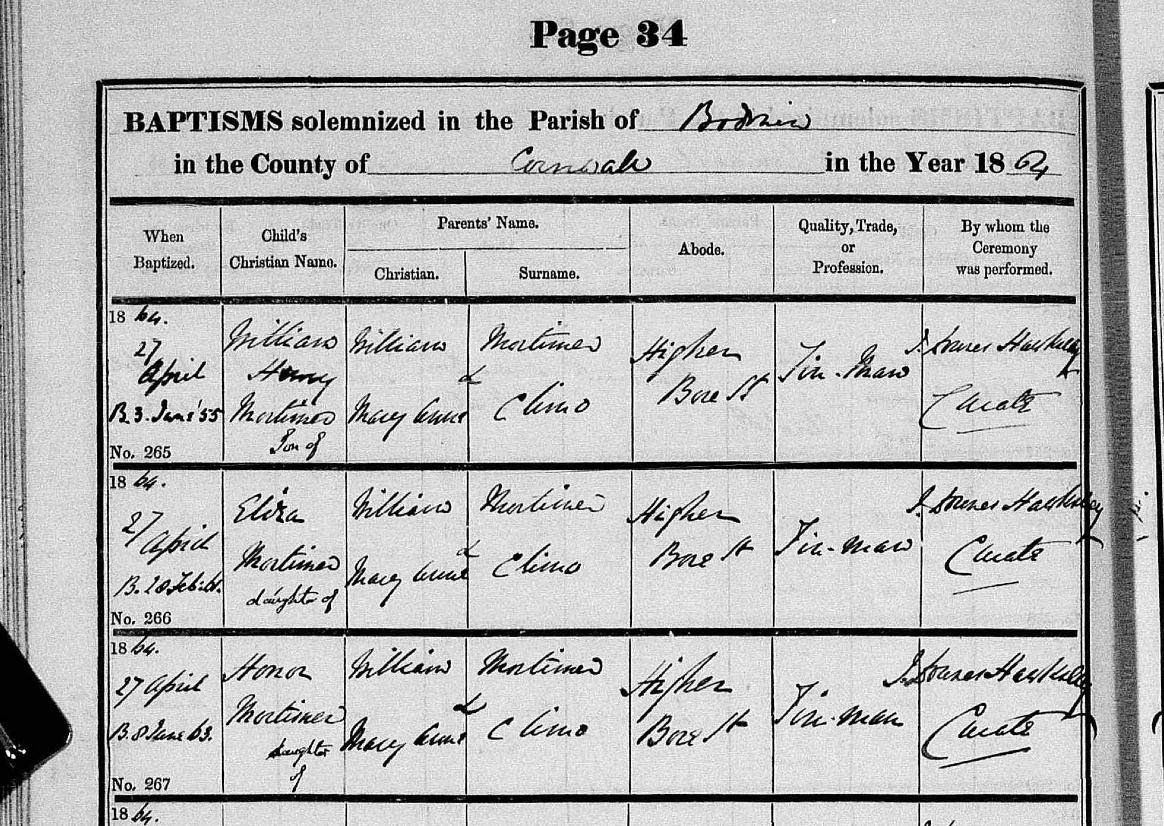 Page 34
BAPTISMS solemnized in the Parish of Bodmin
in the County of Cornwall in the Year 1864
When Baptized. Child's Christian Name. Parents' Name. Christian. Surname. Abode. Quality, Trade, or Profession. By whom the Ceremony was performed.
1864.
27 April
B. 3. June '55
No. 265
William Henry Mortimer Son of
William & Mary Anne
Mortimer Climo
Higher Bore St
Tin-Man
Curate
1864.
27 April
B. 28 Feb.
No. 266
Eliza Mortimer daughter of
William & Mary Anne
Mortimer Climo
Higher Bore St
Tin-man
Curate
1864.
27 April
B. 8 June 63.
No. 267
Honor Mortimer daughter of
William & Mary Anne
Mortimer Climo
Higher Bore St
Tin-man
Curate
1864.